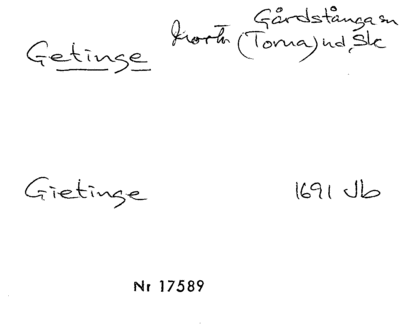 Gårdstånga sn
Getinge (Torna) hd, Sk
Gietinge 1691 Jb
Nr 17589